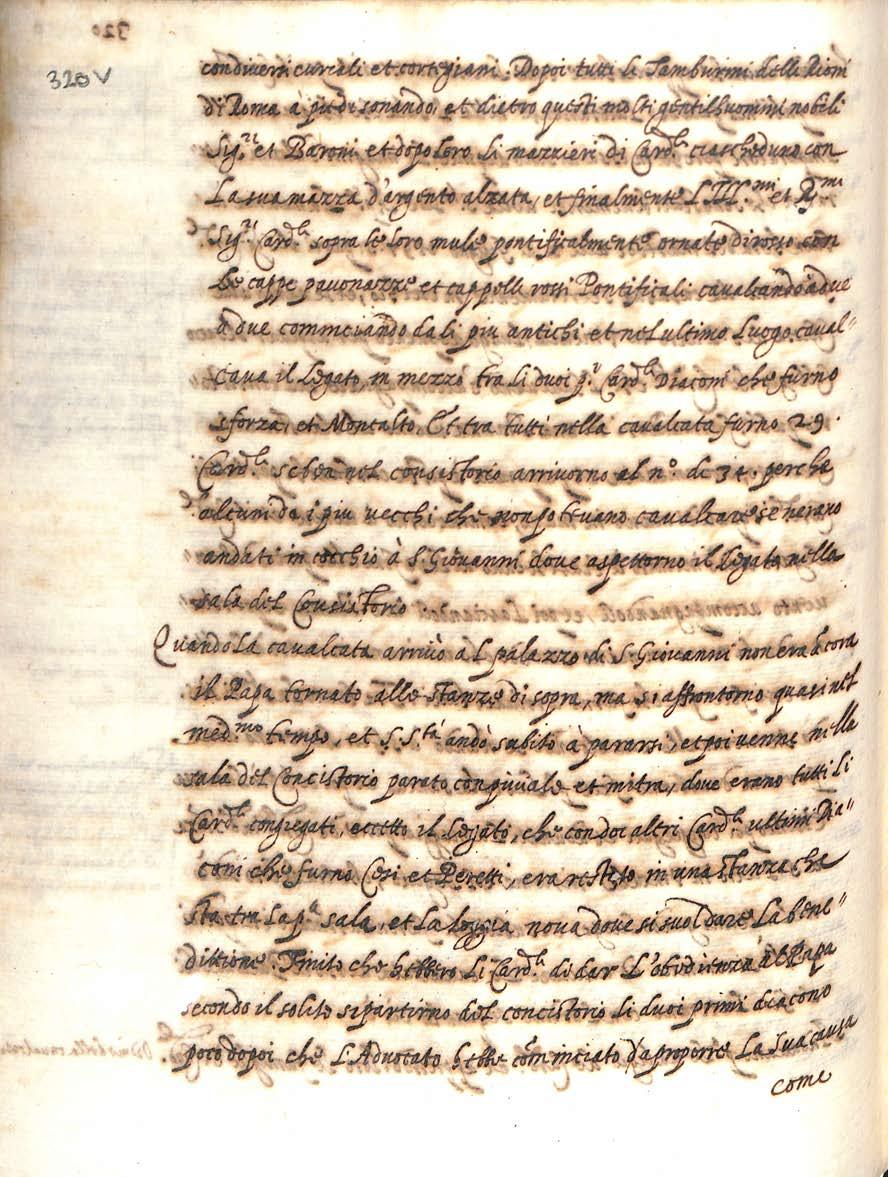 320v
con diversi curiali et cortegiani. Dopoi tutti li Tamburini delli Rioni
di Roma à piedi sonando, et dietro questi molti gentilhuomini nobili
Sig.ri et Baroni et dopo loro li mazzieri di Card.li ciascheduno con
La sua mazza d'argento alzata, et finalmente L'Ill.mi et R.mi
Sig.ri Card.li sopra le loro mule pontificalmente ornate di rosso con
Le cappe pavonazze et cappelli rossi Pontificali cavalcando à due
à due cominciando da li piu antichi et nel ultimo Luogo caval„
cava il legato in mezzo tra li duoi p.i Card.li Diaconi che furno
sforza, et Montalto. Et tra tutti nella cavalcata furno 29.
Card.li se ben nel consistorio arrivorno al n.o di 34. perche
alcuni da i piu vecchi che non potevano cavalcare se n'erano
andati in cocchio à S. Giovanni dove aspettorno il legato nella
sala del Consistorio
Quando La cavalcata arrivò al palazzo di S. Giovanni non era ancora
il Papa tornato alle stanze di sopra, ma si affrontorno quasi nel
med.mo tempo, et S. S.tà andò subito à pararsi, et poi venne nella
sala del Concistorio parato con piviale et mitra, dove erano tutti li
Card.li congregati, eccetto il legato, che con doi altri Card.li ultimi Dia„
coni che furno Cesi et Peretti, era restato in una stanza che
sta tra la p.a sala, et La loggia nova dove si suol dare La bene„
dittione. Finito che hebbero li Card.li di dar L'obedienza al Papa
secondo il solito si partirno del concistorio li duoi primi diaconi
poco dopoi che L'Advocato hebbe cominciato à proporre La sua causa
come